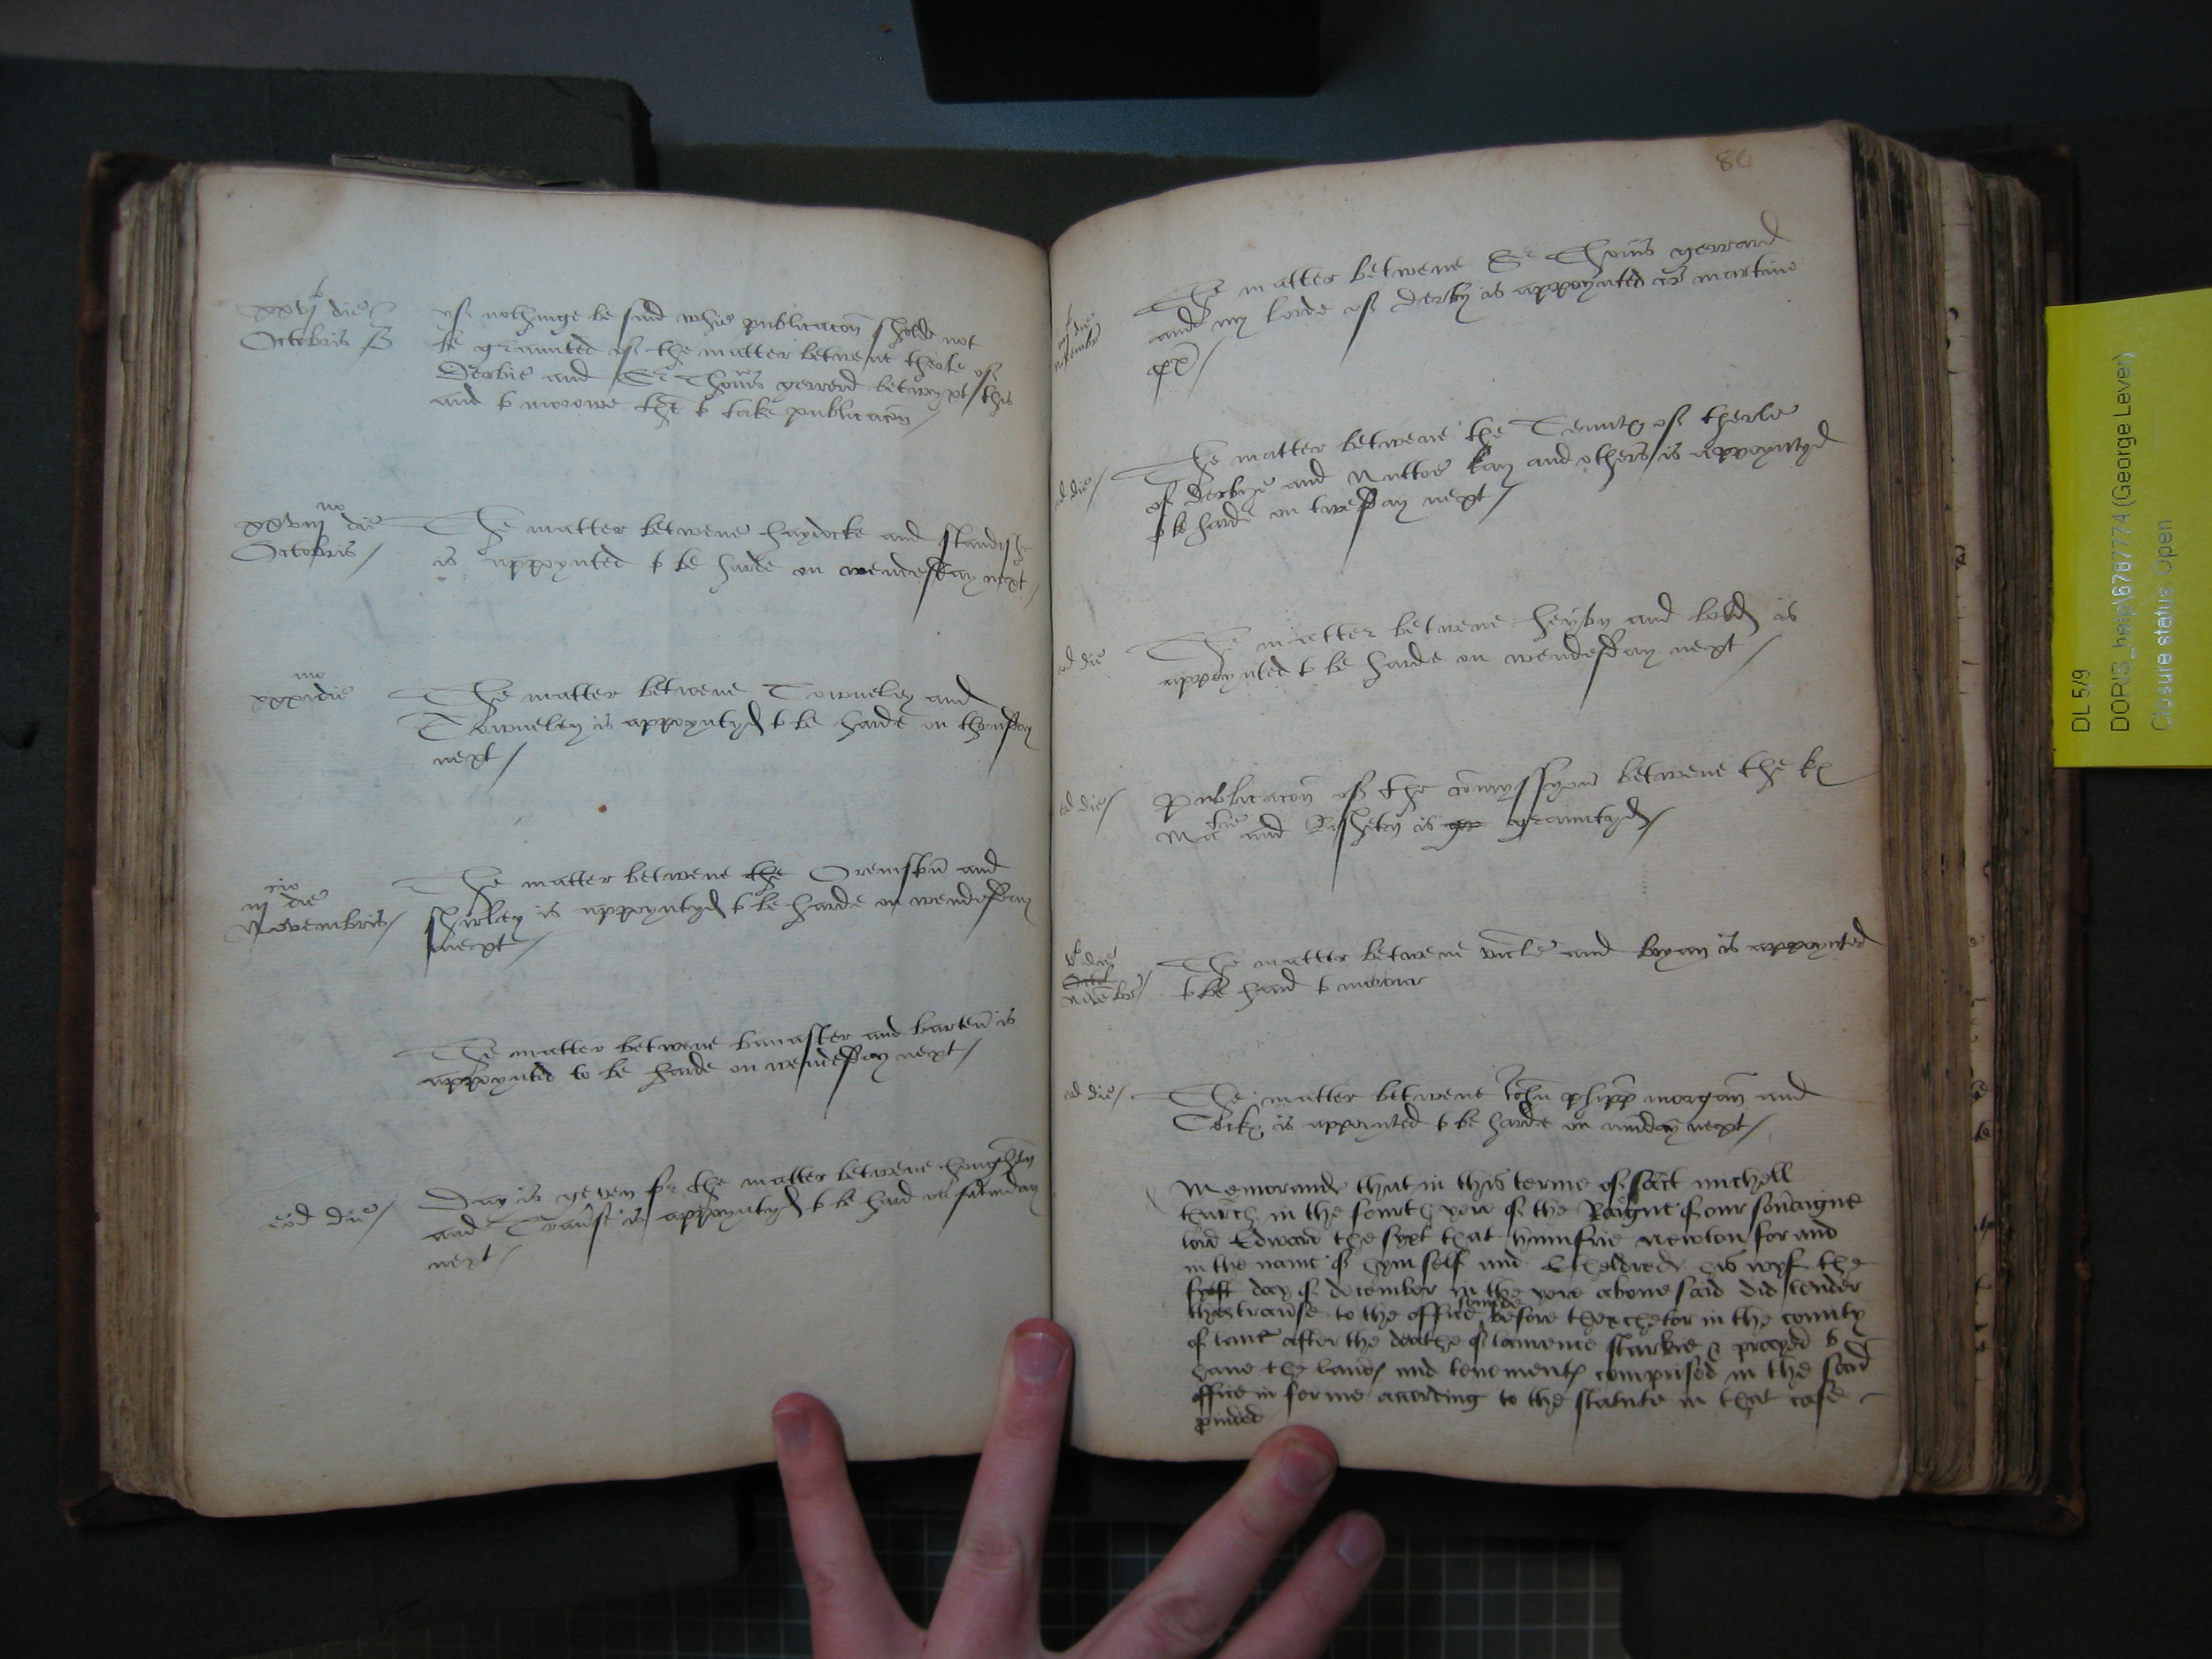 xxvj die
Octobris
yf nothinge be said whie publicacon sholde not
be graunted of the matter betwene therle of
Derbie and Sr Thoms gerrerd betwyxt this
and to morowe then to take publicacon
xxviij no die
Octobris
The matter betwene haydocke and standishe
is appoynted to be harde on wendesday next
xxxmo die
The matter betwene Towneley and
Towneley is appoyntyd to be harde on thursday
next
iijcio die
Novembris
The matter betwene the Ormston and
Shirley is appoyntyd to be harde on wendesday
next
The matter betwene banaster and barton is
appoynted to be harde on wendesday next
eod die
Day is geven for the matter betwene houghton
and is appoyntyd to be hard on saterday
next
86
die
Novembr
The matter betwene Sr Thoms gerrard
and my lorde of Derby is appoynted martine
eod die
The matter betwene the Tenntes of therle
of Derbye and Nuttoe kay and others is appoyntyd
to be harde on twesday next
eod die
The matter betwene heyby and bold is
appoynted to be harde on wendesday next
eod die
Publicacon of the comyssyon betwene the k
Matie and Risheton is gr grauntyd
v die
Octob
Novebr
The matter betwene and is appoynted
to be hard to morow
eod die
The matter betwene John phipp morgan and
is appoynted to be harde on munday next
Memorand that in this terme of sact michell
tharch in the fourth yere of the Reigne of our soveraigne
lord Edward the syxt that humfrie newton for and
in the name of hym self and Etheldred his wyf the
fyrst day of december in the yere above said did tender
thes traverse to the office founde before thexchetor in the county
of lanc after the deathe of lawrence starkie & prayed to
have the lands and tenements comprised in the said
office in forme according to the statute in that case
pvided
DL 5/9
DORIS_help\6787774 (George Lever)
Closure status: Open